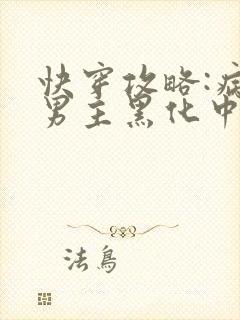 快穿攻略:病
男主黑化中
法鳥